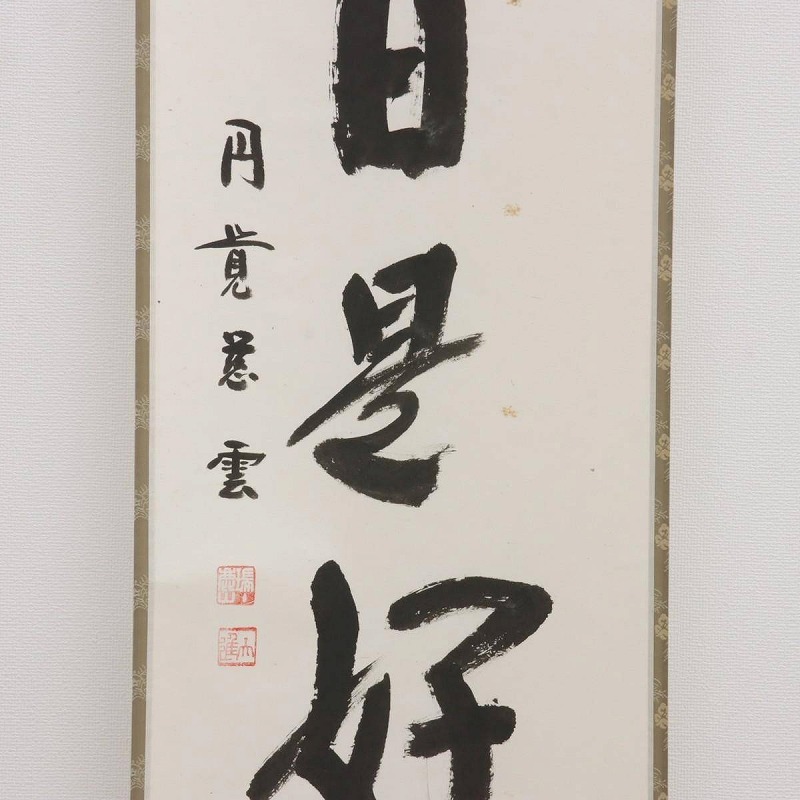 日是好
円覚慈雲